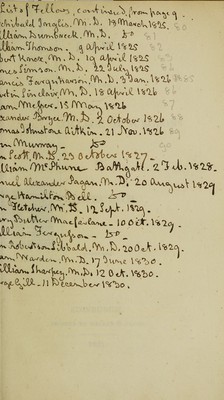 List of Fellows, continued from page 9.
chibald Inglis, M.D. 18 March 1825. 88
illiam Dumbreck, M.D. Do
lliam Thomson. 9 April 1825
bert Knox, M.D. 19 April 1825
mes Simson. M.D. 22 July 1825
ancis Farquharson, M.D. 3 Jan. 1826
rtin Sinclair, M.D. 18 April 1826
am Mercer. 15 May 1826
exander Bryce, M.D. 2 October 1826
omas Johnstone Aitkin. 21 Nov. 1826
n Murray — Do
n Scott, M.D. 23 October 1827.
lliam McShune Bathgate. 2 Feb. 1828.
muel Alexander Pagan, M.D. 20 August 1829
rge Hamilton Bell. Do
n Fletcher, M.D. 12 Sept. 1829.
ry Duther Macfarlane. 10 Oct. 1829.
illiam Fergusson — Do
n Robertson Sibbald, M.D. 20 Oct. 1829.
am Warden, M.D. 17 June 1830.
illiam Sharpey, M.D. 12 Oct. 1830.
rge Gill. 11 December 1830.